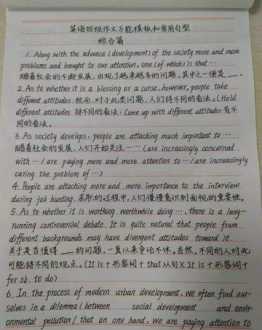 英语四级作文万能模板和常用句型
综合篇
1. Along with the advance (development) of the society more and more
problems and brought to our attention, one (of which) is that ...
随着社会的不断发展，出现了越来越多的问题，其中之一便是 __ 。
2. As to whether it is a blessing or a curse, however, people take
different attitudes. 然而，对于此类问题，人们持不同的看法。(Hold
different attitudes 持不同的看法；Come up with different attitudes 有不
同的看法。
3. As society develops, people are attaching much important to ...
随着社会的发展，人们开始关注 ... (are increasingly concerned
with ... / are paying more and more attention to ... / are increasingly
caring the problem of ...)
4. People are attaching more and more importance to the interview
during job hunting. 求职的过程中，人们慢慢意识到面试的重要性。
5. As to whether it is worthing worthwhile doing ..., there is a long-
running controversial debate. It is quite natural that people from
different backgrounds may have divergent attitudes toward it.
关于是否值得 __ 的问题，一直以来争论不休，当然，不同的人对此
可能持不同的观点。(It is + 形容词 + that 从句 ≥ It is + 形容词 +
for sb. to do)
6. In the process of modern urban development, we often find our-
selves in a dilemma (between social development and envir-
onmental pollution) that on one hand, we are paying attention to